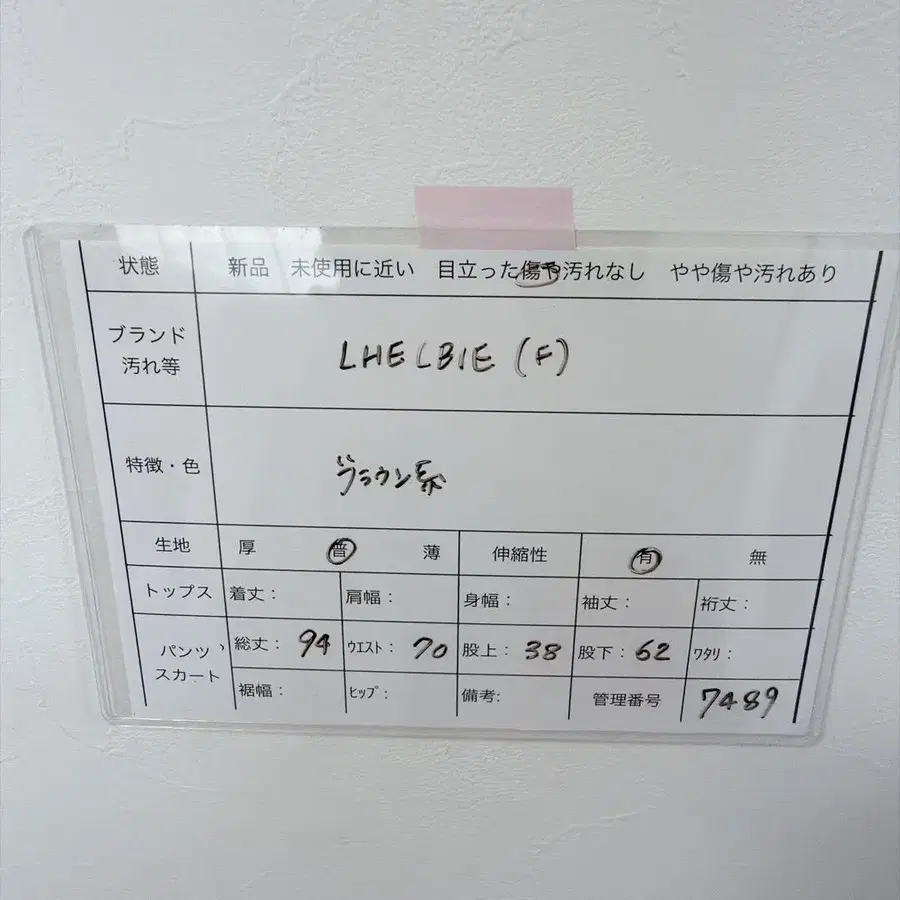 状態 新品 未使用に近い 目立った傷や汚れなし やや傷や汚れあり
ブランド
汚れ等
LHELBIE (F)
特徴・色 ブラウン系
生地 厚 普 薄 伸縮性 有 無
トップス 着丈: 肩幅: 身幅: 袖丈: 裄丈:
パンツ、
スカート
総丈: 94 ウエスト: 70 股上: 38 股下: 62 ワタリ:
裾幅: ヒップ: 備考: 管理番号 7489